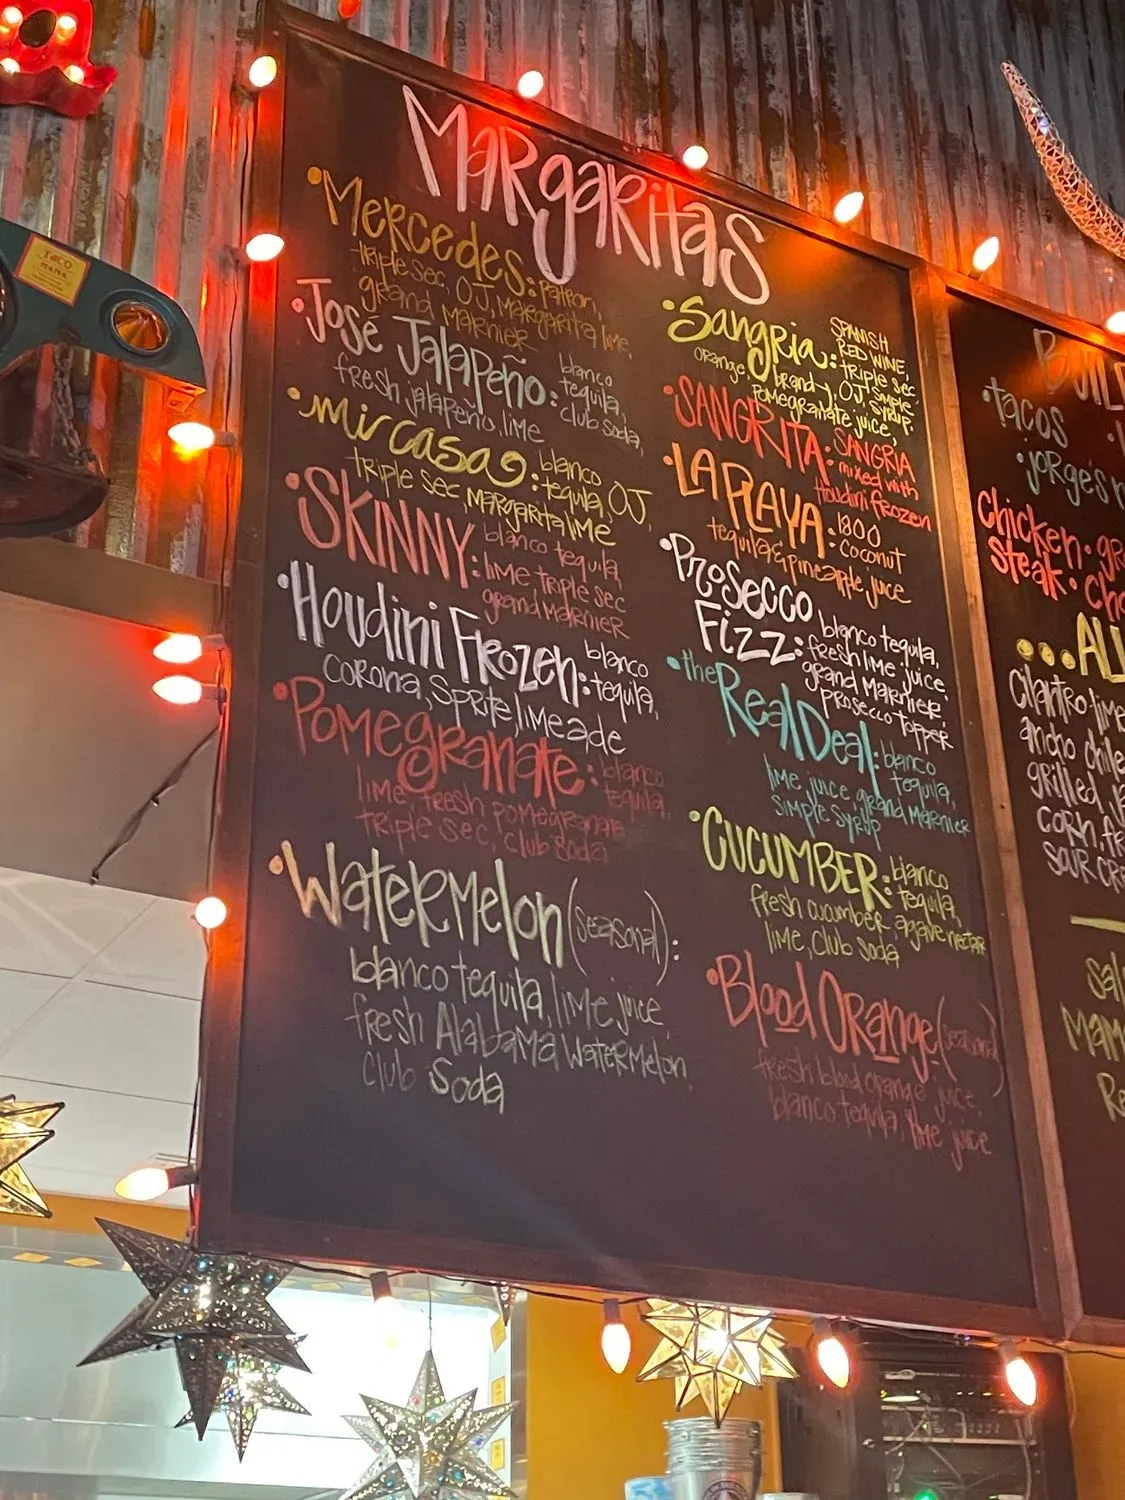 TACO
MAMA
MARgaRitas
• Mercedes: Patron,
triple sec, OJ, Margarita lime,
grand Marnier
• José Jalapeño: blanco
tequila,
club soda,
fresh jalapeño, lime
• mi casa: blanco
tequila, OJ,
triple sec, Margarita lime
• SKINNY: blanco tequila,
lime triple sec
grand Marnier
• Houdini Frozen: blanco
tequila,
corona, Sprite, limeade
• Pomegranate: blanco
tequila,
lime, fresh pomegranate
triple sec, club soda
• Watermelon (seasonal):
blanco tequila, lime juice,
fresh Alabama Watermelon,
Club Soda
• Sangria: SPANISH
RED WINE,
triple sec
orange brandy, OJ, simple
syrup,
pomegranate juice,
• SANGRITA: SANGRIA
mixed with
Houdini frozen
• LA PLAYA: 1800
coconut
tequila & pineapple juice
• Prosecco
Fizz: blanco tequila,
fresh lime juice,
grand Marnier,
prosecco topper
• the Real Deal: blanco
tequila,
lime juice, grand Marnier
simple syrup
• CUCUMBER: blanco
tequila,
fresh cucumber, agave nectar
lime, club soda
• Blood Orange (seasonal)
fresh blood orange juice,
blanco tequila, lime juice
• tacos
• jorge's
Chicken •
steak •
...
Cilantro lime
ancho chile
grilled
corn,
sour